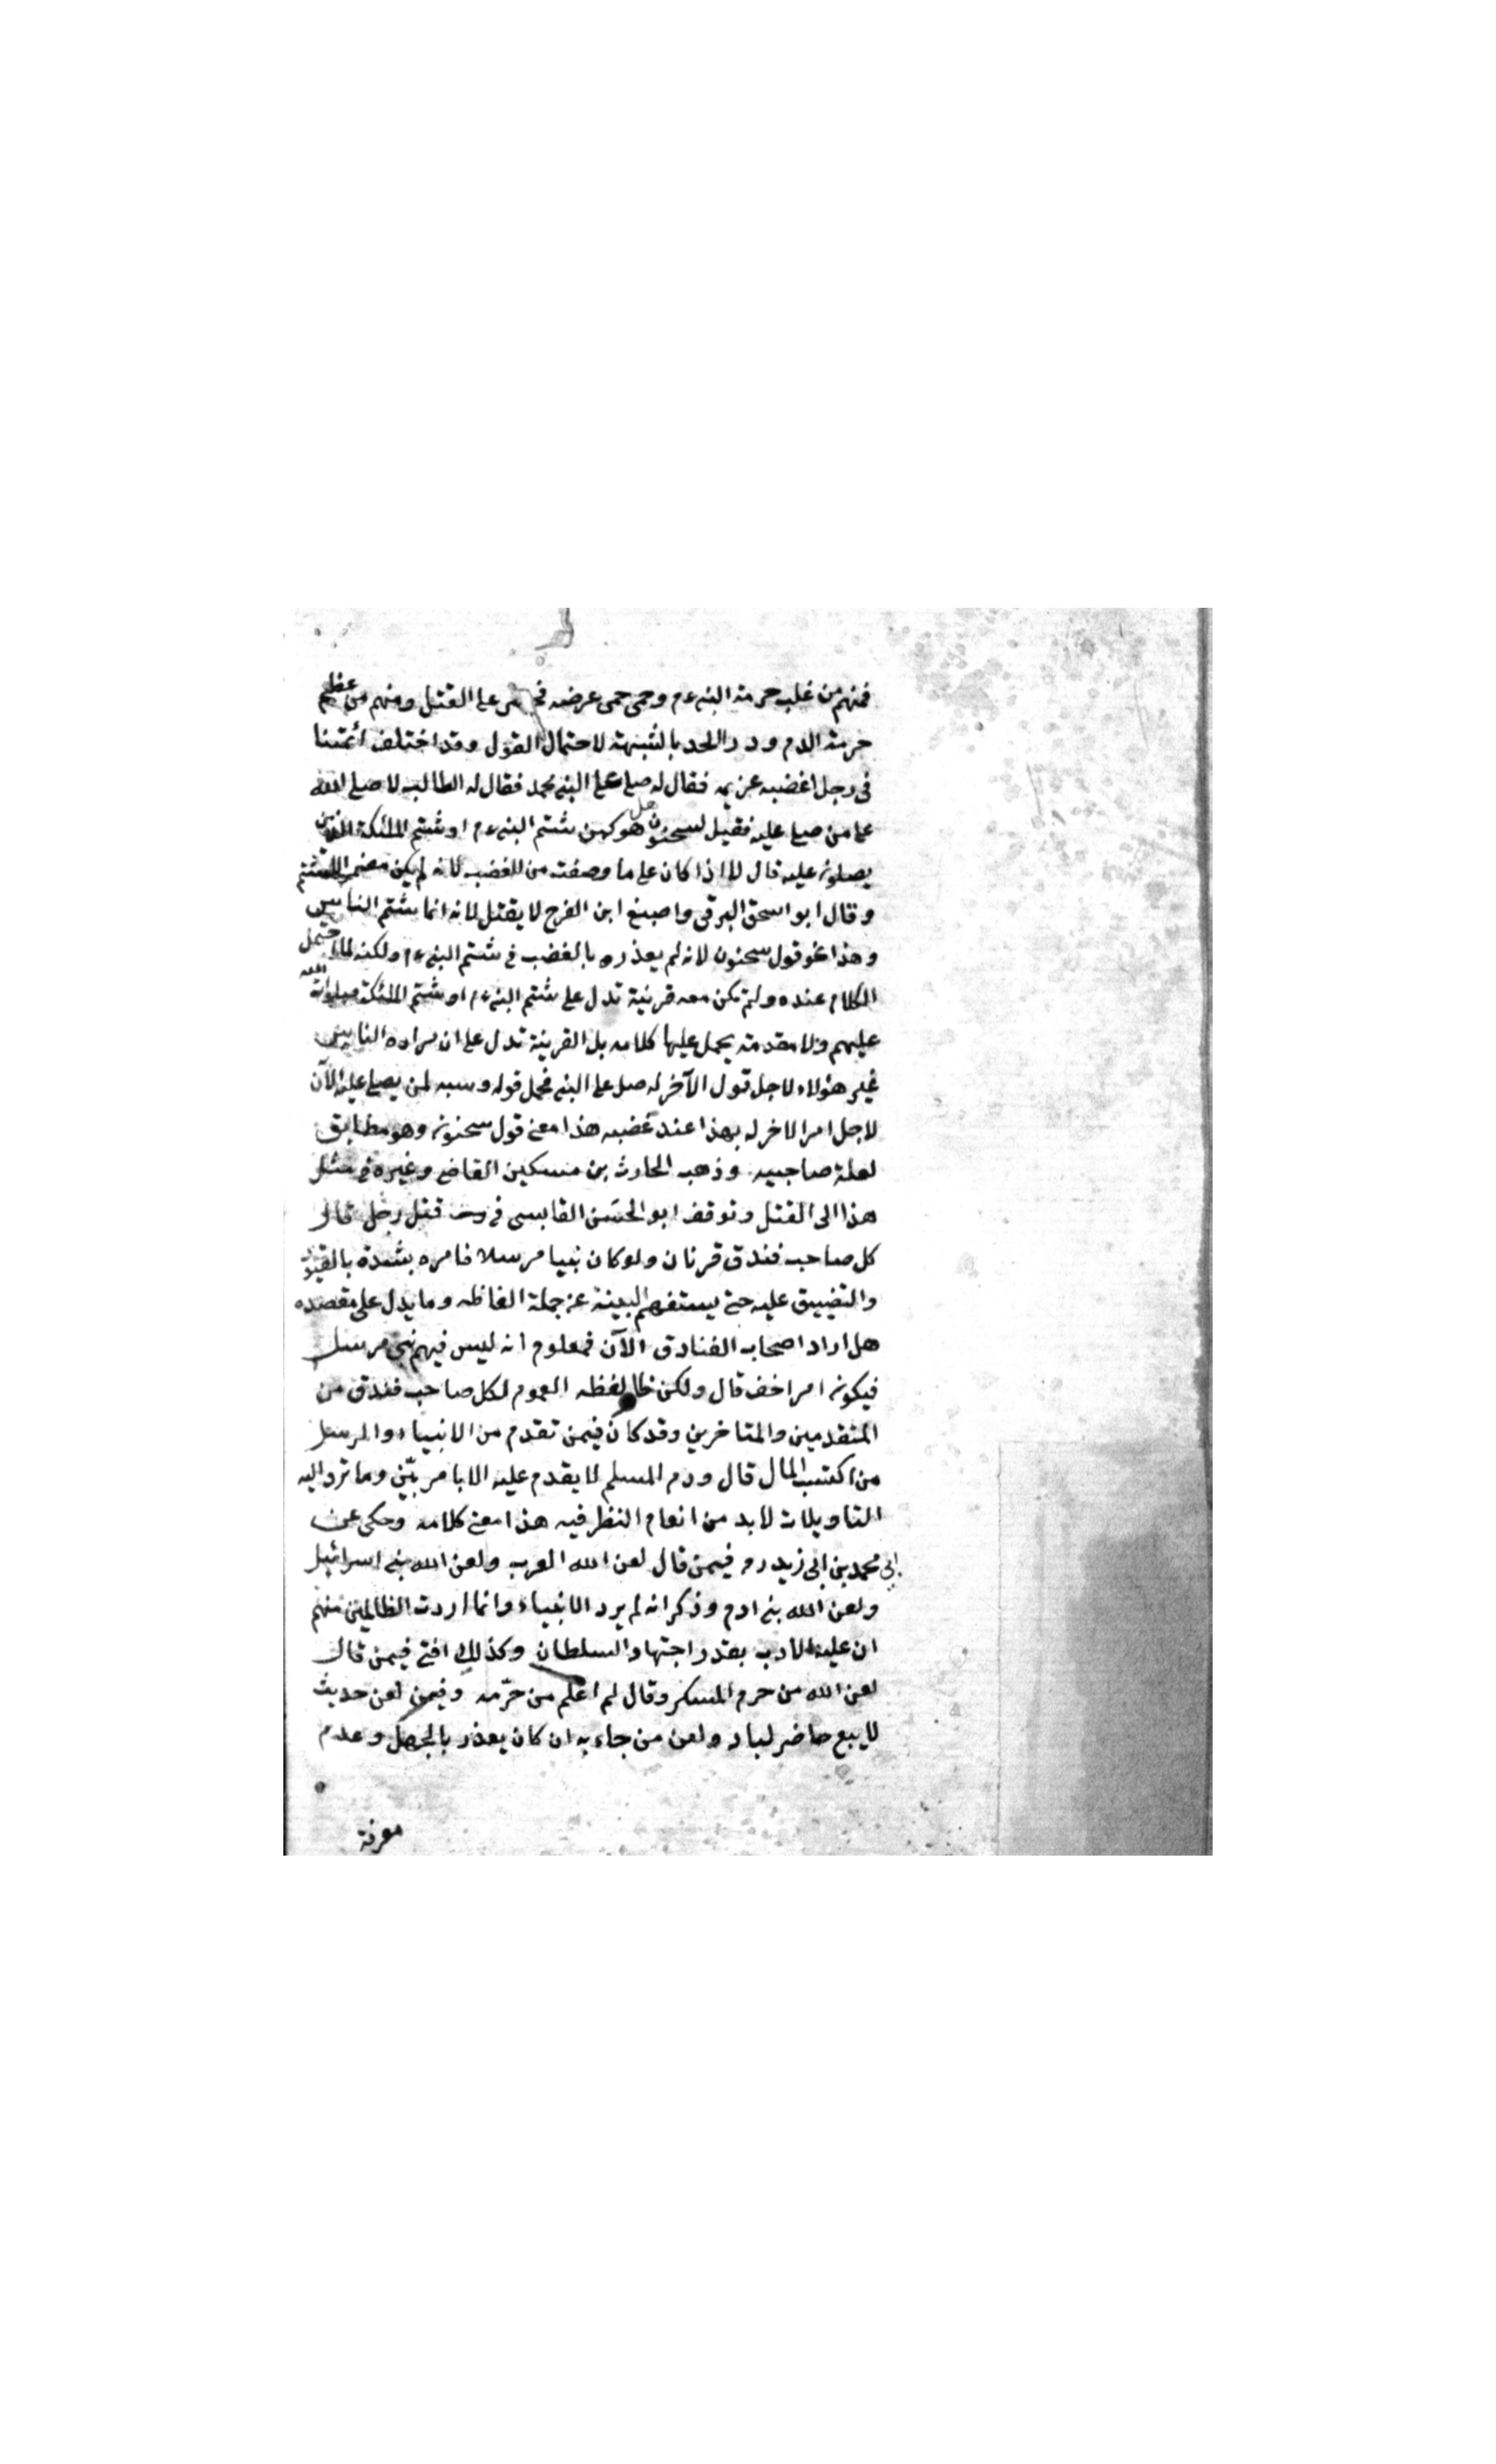 فمنهم من غلب حرمة النبي ءم وحمى حمى عرضه فجسر على القتل ومنهم من عظم
حرمة الدم ودرا الحد بالشبهة لاحتمال القول وقد اختلف ائمتنا
فى رجل اغضبه غريمه فقال له صلى على النبي محمد فقال له الطالب لا صلى الله
على من صلى عليه فقيل لسحنون هل هو كمن شتم النبي ءم او شتم الملئكة الذين
يصلون عليه قال لا اذا كان على ما وصفت من الغضب لانه لم يكن مضمرا الشتم
وقال ابو اسحق البرقى واصبغ ابن الفرج لا يقتل لانه انما شتم الناس
وهذا نحو قول سحنون لانه لم يعذره بالغضب في شتم النبي ءم ولكنه لما احتمل
الكلام عنده ولم تكن معه قرينة تدل على شتم النبي ءم او شتم الملئكة صلوات الله
عليهم ولا مقدمة يحمل عليها كلامه بل القرينة تدل على ان مراده الناس
غير هؤلاء لاجل قول الآخر له صل على النبي فحمل قوله وسبه لمن يصلى عليه الآن
لاجل امر الاخر له بهذا عند غضبه هذا معنى قول سحنون وهو مطابق
لعلة صاحبيه وذهب الحارث بن مسكين القاضى وغيره في مثل
هذا الى القتل وتوقف ابو الحسن القابسى في قتل رجل قال
كل صاحب فندق قرنان ولو كان نبيا مرسلا فامره بشده بالقيود
والتضييق عليه حتى يستفهم البينة عن جملة الفاظه وما يدل على مقصده
هل اراد اصحاب الفنادق الآن فمعلوم انه ليس فيهم نبي مرسل
فيكون امرا خف قال ولكن ظا لفظه العموم لكل صاحب فندق من
المتقدمين والمتاخرين وقد كان فيمن تقدم من الانبياء والرسل
من اكتسب المال قال ودم المسلم لا يقدم عليه الا بامر بين وما ترد اليه
التاويلات لا بد من انعام النظر فيه هذا معنى كلامه وحكى عن
ابي محمد بن ابى زيد رم فيمن قال لعن الله العرب ولعن الله بني اسرائيل
ولعن الله بني ادم وذكر انه لم يرد الانبياء وانما اردت الظالمين منهم
ان عليه الادب بقدر اجتهاد السلطان وكذلك افتى فيمن قال
لعن الله من حرم المسكر وقال لم اعلم من حرّمه وفيمن لعن حديث
لا يبع حاضر لباد ولعن من جاء به ان كان يعذر بالجهل وعدم
معرفة